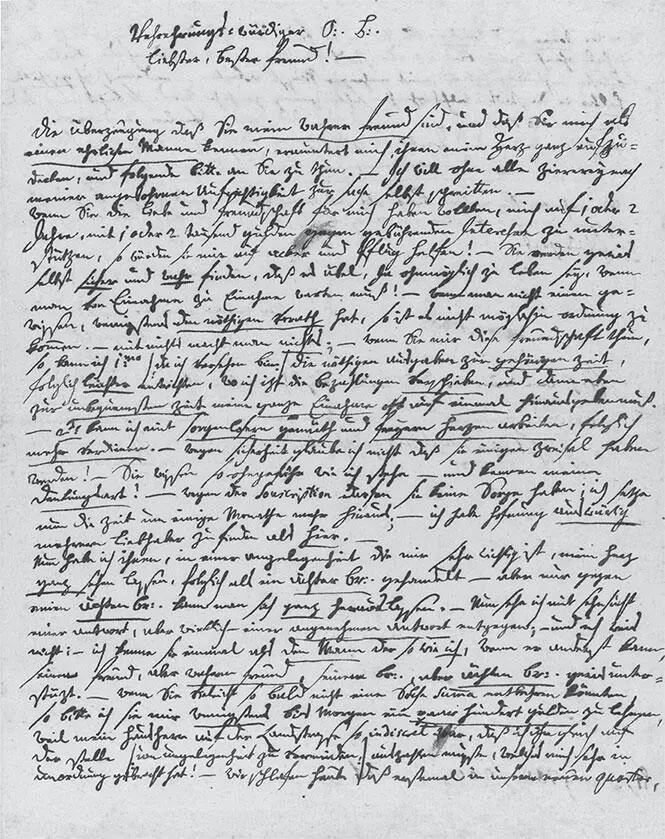 Verehrungs: würdiger O:. B:.
liebster, bester freund! —
Die Überzeugung daß Sie mein wahrer freund sind, und daß Sie mich als
einen ehrlichen Manne kennen, ermuntert mich ihnen mein Herz ganz aufzu-
decken, und folgende bitte an Sie zu thun. — Ich will ohne alle Ziererey nach
meiner angebohrnen Aufrichtigkeit zur sache selbst schreiten. —
Wenn Sie die liebe und freundschaft für mich haben wollten, mich auf 1 oder 2
Jahre, mit 1 oder 2 tausend gulden gegen gebührenden Interessen zu unter-
stützen, so würden sie mir auf acker und Pflug helfen! — Sie werden gewis
selbst sicher und wahr finden, daß es übel, Ja ohnmöglich zu leben sey, wenn
man von Einahme zu Einahme warten muß! — wenn man nicht einen ge-
wissen, wenigstens den nöthigen vorath hat, so ist es nicht möglich in ordnung zu
kommen. — mit nichts macht man nichts; — wenn Sie mir diese freundschaft thun,
so kann ich 1:mo (da ich versehen bin) die nöthigen ausgaben zur gehörigen zeit,
folglich leichter entrichten, wo ich izt die bezahlungen verschieben, und dann eben
zur unbequemsten zeit meine ganze Einahme oft auf einmal hinausgeben muß.
— 2do: kann ich mit sorglosern gemüth und freyern herzen arbeiten, folglich
mehr verdienen. — wegen sicherheit glaube ich nicht daß sie einigen zweifel haben
werden! — Sie wissen so ohngefähr wie ich stehe — und kennen meine
Denkungsart! — wegen der souscription dürfen sie keine Sorge haben; ich setze
nun die zeit um einige Monathe mehr hinaus; — ich habe hofnung auswärtig
mehrere liebhaber zu finden als hier. —
Nun habe ich ihnen, in einer angelegenheit die mir sehr wichtig ist, mein herz
ganz sehen lassen, folglich als ein ächter br:. gehandelt — aber nur gegen
einen ächten br:. kann man sich ganz heraus lassen. — Nun sehe ich mit sehnsucht
einer antwort, aber wirklich — einer angenehmen antwort entgegen; — und ich weis
nicht: — ich kenne sie einmal als den Mann der so wie ich, wenn er anderst kann,
seinen freund, aber wahren freund, seinen br:., aber ächten br:. gewis unter-
stüzt. — wenn Sie vieleicht so bald nicht eine Solche Suma entbehren könnten
so bitte ich sie mir wenigstens bis Morgen ein paar hundert gulden zu leihen,
weil mein hausherr auf der landstrasse so indiscret war, daß ich ihn gleich auf
der stelle (um ungelegenheit zu vermeiden) auszahlen musste, welches mich sehr in
unordnung gebracht hat! — wir schlafen heute das erstemal in unserem neuen quartier,